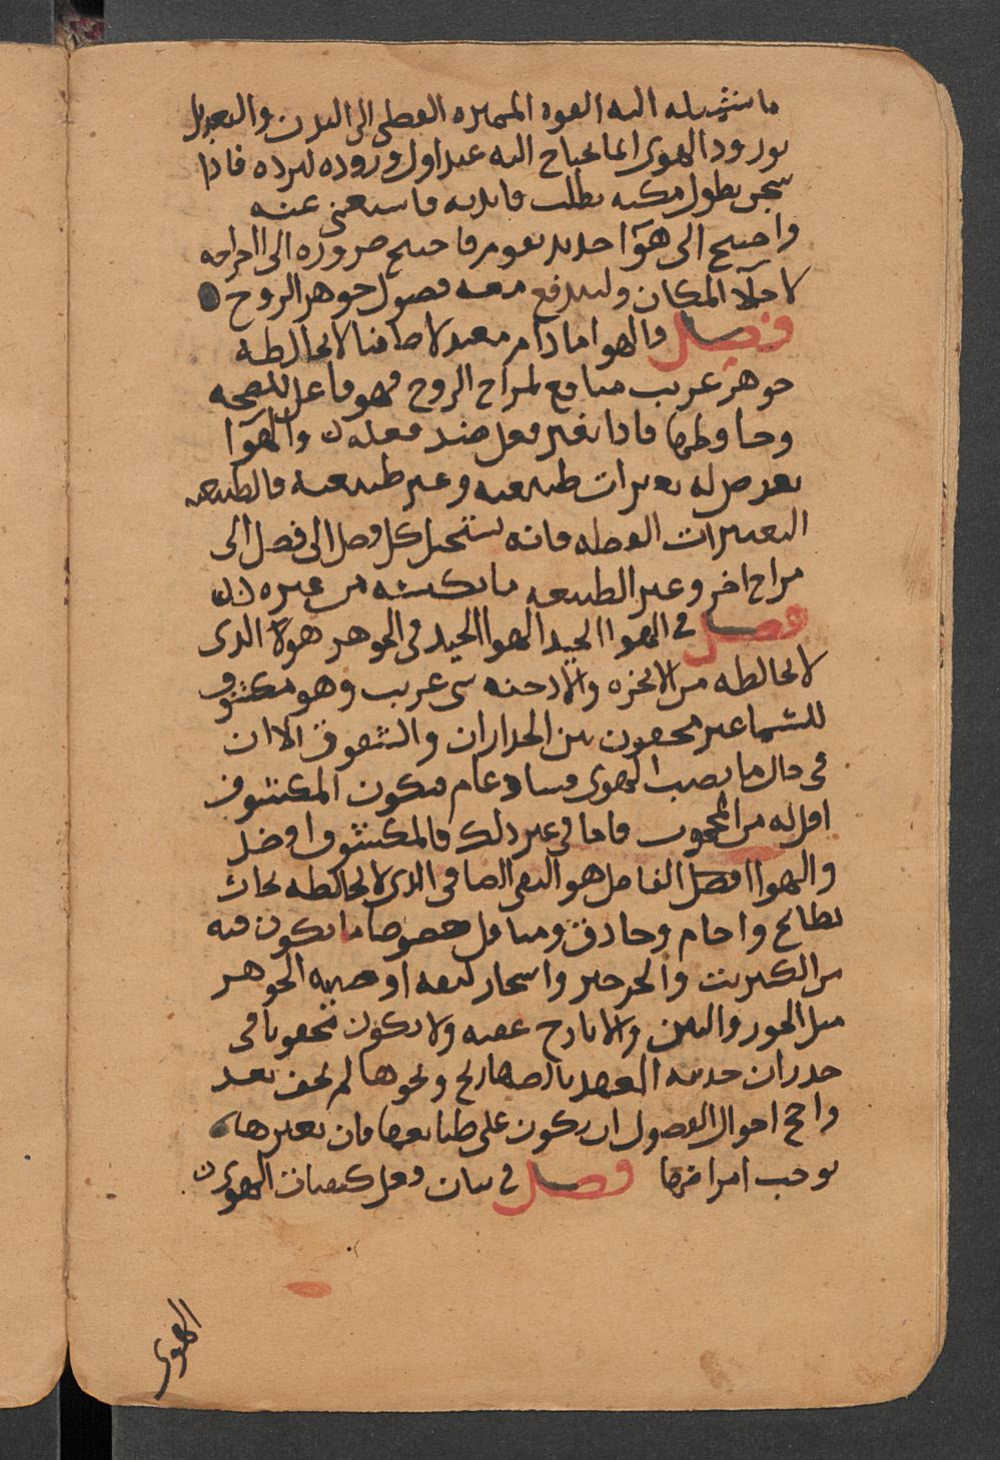 ما ينشبله اليه القوة المميزه الفضلى الى البدن والتعديل
بورود الهوى انما يحتاج اليه عند اول وروده لبرده فاذا
سخن بطول مكثه بطلت فايدته فاستغنى عنه
واحتيج الى هوآ جديد يقوم فاحتيج ضروره الى اخراجه
لاخلآ المكان وليندفع معه فضول جوهر الروح
فصل والهوا ما دام معتدلا صافيا لا يخالطه
جوهر غريب منافع لمزاج الروح فهو فاعل للصحه
وحافظها فاذا تغير فعل ضد فعله والهوآ
يعرض له تغيرات طبيعيه وغير طبيعيه فالطبيعيه
التغيرات الفصليه فانه يستحيل كل فصل الى فصل الى
مزاج اخر وغير الطبيعيه ما يكتسبه من غيره
فصل في الهوا الجيد الهوا الجيد في الجوهر هو الذي
لا يخالطه من الابخره والادخنه شى غريب وهو مكشوف
للسما غير محقون بين الجدارات والسقوف الا ان
في حال ما يصيب الهوى فساد عام فيكون المكشوف
اقبل له من المحجوب فاما في غير ذلك فالمكشوف افضل
والهوا الفاضل هو النقي الصافي الذي لا يخالطه بخار
بطائح واجام وخنادق ومباقل خصوصا ما يكون فيه
من الكبريت والجرجير واشجار كثيفه او خبيثه الجوهر
مثل الجوز والتين والارياح عفنه ولا يكون محقونا في
جدران حديثه العهد بالصهاريج ونحوها لم تجف بعد
واصح احوال الفصول ان يكون على طبائعها فان تغيرها
يوجب امراضها فصل في بيان فعل كيفيات الهوى
الهوى